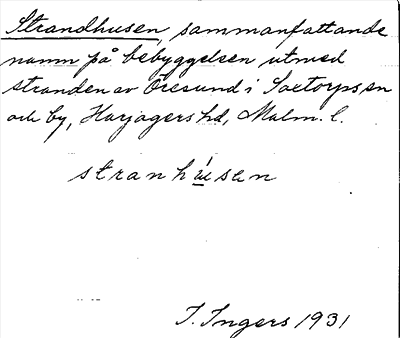 Strandhusen, sammanfattande
namn på bebyggelsen utmed
stranden av Öresund i Saxtorps sn
och by, Harjagers hd, Malm. l.
stranhúsen
I. Ingers 1931